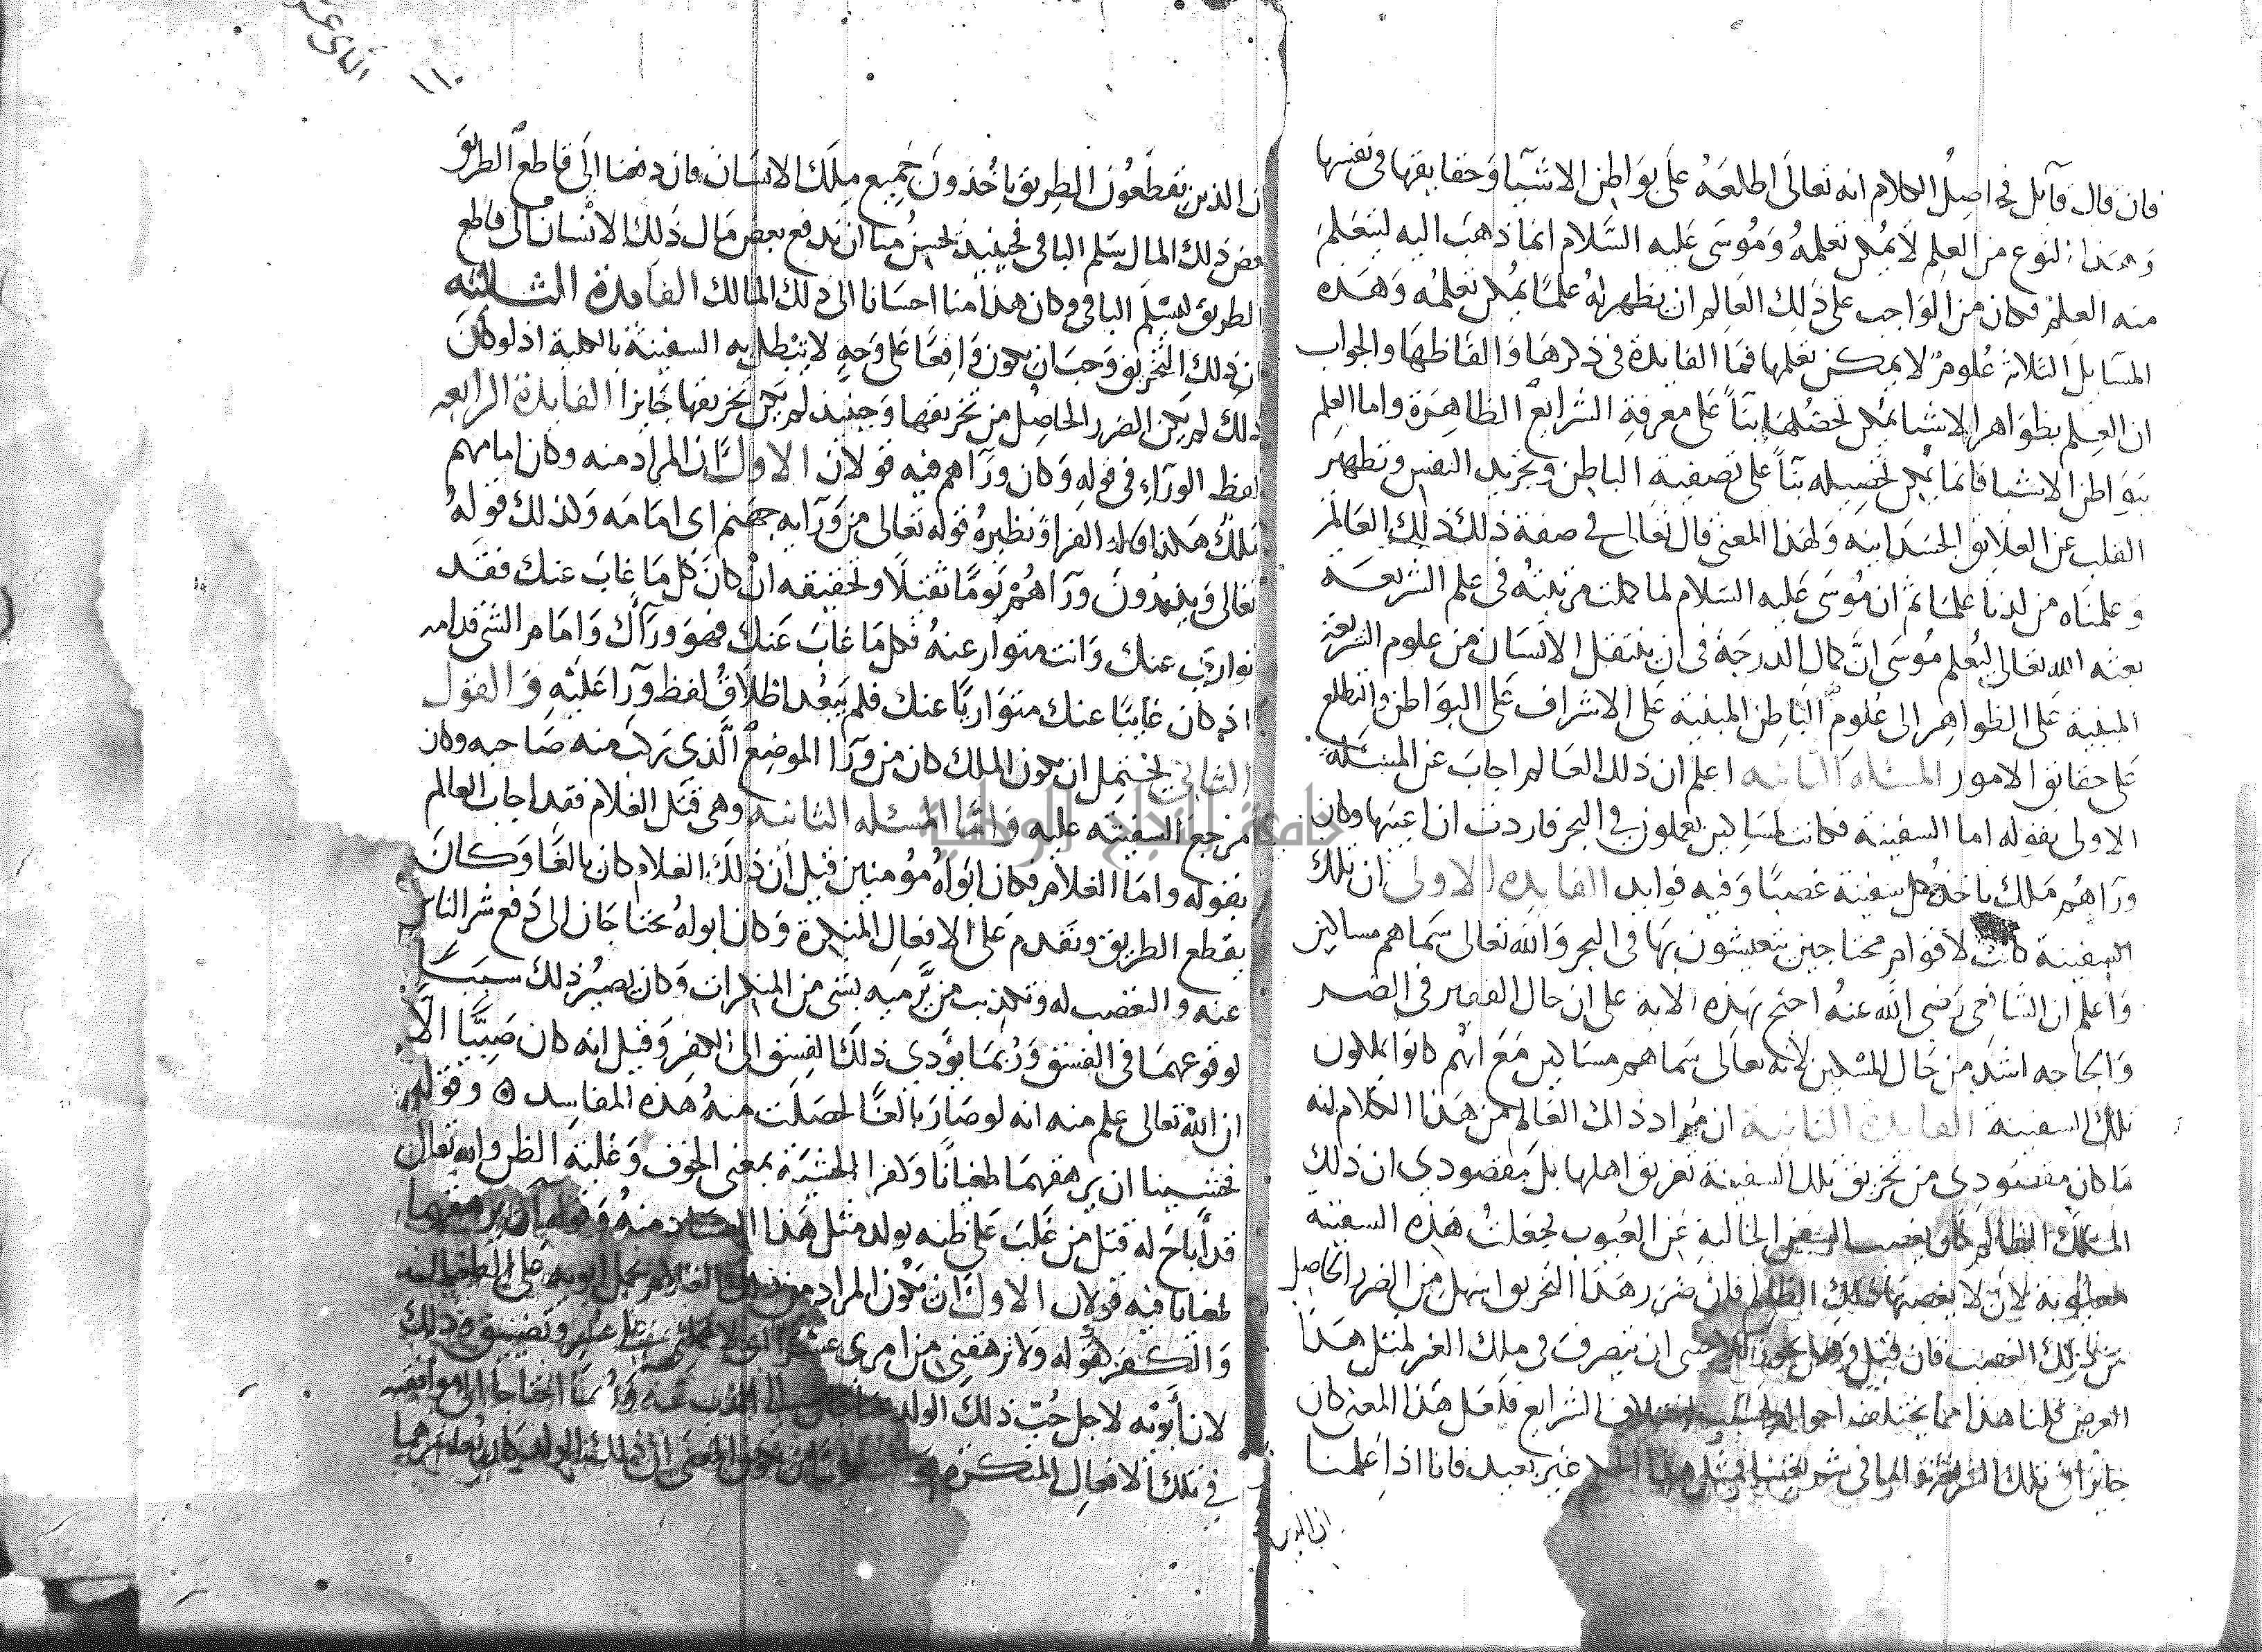 فان قال قائل فحاصل الكلام انه تعالى اطلعه على بواطن الاشيا وحقايقها في نفسها
وهذا النوع من العلم لا يمكن تعلمه وموسى عليه السلام انما ذهب اليه ليتعلم
منه العلم فكان من الواجب على ذلك العالم ان يظهر له علما يمكن تعلمه وهذه
المسايل الثلاثة علوم لا يمكن تعلمها فما الفايدة في ذكرها والفاظها والجواب
ان العلم بظواهر الاشيا يمكن تحصيلها بنا على معرفة الشرايع الظاهرة واما العلم
ببواطن الاشيا فانما يمكن تحصيله بنا على تصفية الباطن وتجريد النفس وتطهير
القلب عن العلايق الجسدانيه ولهذا المعنى قال تعالى في صفة ذلك ذلك العالم
وعلمناه من لدنا علما ثم ان موسى عليه السلام لما كملت مرتبته في علم الشريعة
بعثه الله تعالى ليعلم موسى ان كمال الدرجة في ان ينتقل الانسان من علوم الشريعة
المبنية على الظواهر الى علوم الباطن المبنية على الاشراف على البواطن والتطلع
على حقائق الامور المسئله الثانيه اعلم ان ذلك العالم اجاب عن المسئله
الاولى بقوله اما السفينة فكانت لمساكين يعملون في البحر فاردت ان اعيبها وكان
وراهم ملك ياخذ كل سفينة غصبا وفيه فوايد الفايده الاولى ان تلك
السفينة كانت لاقوام محتاجين يتعيشون بها في البحر والله تعالى سماهم مساكين
واعلم ان الشافعي رضي الله عنه احتج بهذه الاية على ان حال الفقير في الضر
والحاجه اشد من حال المسكين لانه تعالى سماهم مساكين مع انهم كانوا يملكون
تلك السفينة الفايدة الثانية ان مراد ذاك العالم من هذا الكلام انه
ما كان مقصودي من تخريق تلك السفينة تغريق اهلها بل مقصودي ان ذلك
الملك الظالم كان يغصب السفن الخالية عن العيوب فجعلت هذه السفينة
معيوبة لان لا يغصبها ذلك الظالم فان ضرر هذا التخريق اسهل من الضرر الحاصل
من ذلك الغصب فان قيل وهل يجوز للاجنبي ان يتصرف في ملك الغير لمثل هذا
الغرض قلنا هذا مما يختلف احواله بحسب اختلاف الشرايع فلعل هذا المعنى كان
جايزا في تلك الشريعة واما في شريعتنا فمثل هذا الحكم غير بعيد فانا اذا علمنا
ان الذين
١١٠
ان الذين يقطعون الطريق ياخذون جميع ملك الانسان فان دفعنا الى قاطع الطريق
بعض ذلك المال سلم الباقي فحينيذ يحسن منا ان ندفع بعض مال ذلك الانسان الى قاطع
الطريق ليسلم الباقي وكان هذا منا احسانا الى ذلك المالك الفايدة الثالثه
ان ذلك التخريق وجب ان يكون واقعا على وجه لا تبطل به السفينة بالكلية اذ لو كان
ذلك لم يكن الضرر الحاصل من تخريقها وحينيذ لم يكن تخريقها جايزا الفايدة الرابعه
لفظ الوراء في قوله وكان وراهم فيه قولان الاول ان المراد منه وكان امامهم
ملك هكذا قاله الفرا ونظيره قوله تعالى من ورايه جهنم اى امامه وكذلك قوله
تعالى ويذرون وراهم يوما ثقيلا وتحقيقه ان كان كل ما غاب عنك فقد
توارى عنك وانت متوار عنه فكل ما غاب عنك فهو وراك وامام الشي قدامه
اذ كان غايبا عنك متواريا عنك فلم يبعد اطلاق لفظ ورا عليه والقول
الثاني يحتمل ان يكون الملك كان من ورا الموضع الذي يركب منه صاحبه وكان
مرجع السفينة عليه واما المسئله الثانيه وهي قتل الغلام فقد اجاب العالم
بقوله واما الغلام فكان ابواه مؤمنين قيل ان ذلك الغلام كان بالغا وكان
يقطع الطريق ويقدم على الافعال المنكرة وكان ابواه يحتاجان الى دفع شر الناس
عنه والتعصب له وتكذيب من يرميه بشي من المنكرات وكان يصير ذلك سببا
لوقوعهما في الفسق وربما يؤدي ذلك الفسق الى الكفر وقيل انه كان صبيا الا
ان الله تعالى علم منه انه لو صار بالغا لحصلت منه هذه المفاسد وقوله
فخشينا ان يرهقهما طغيانا وكفرا الخشية بمعنى الخوف وغلبة الظن والله تعالى
قد اباح له قتل من غلب على ظنه تولد مثل هذا الفساد منه وقوله ان يرهقهما
طغيانا فيه قولان الاول ان يكون المراد من ذلك الغلام يحمل ابويه على الطغيان
والكفر كقوله ولا ترهقني من امري عسرا اي لا تحملني على عسر وتضييق وذلك
لان ابويه لاجل حب ذلك الولد يحتاجان الى الذب عنه وربما احتاجا الى موافقته
في تلك الافعال المنكرة المعنى ان ذلك الولد كان يعاشرهما